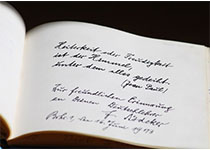 Heiterkeit oder Freudigkeit
ist der Himmel,
unter dem alles gedeiht.
(Jean Paul)
Zur freundlichen Erinnerung
an Ihren Deutschlehrer
F.
den 16. Juni